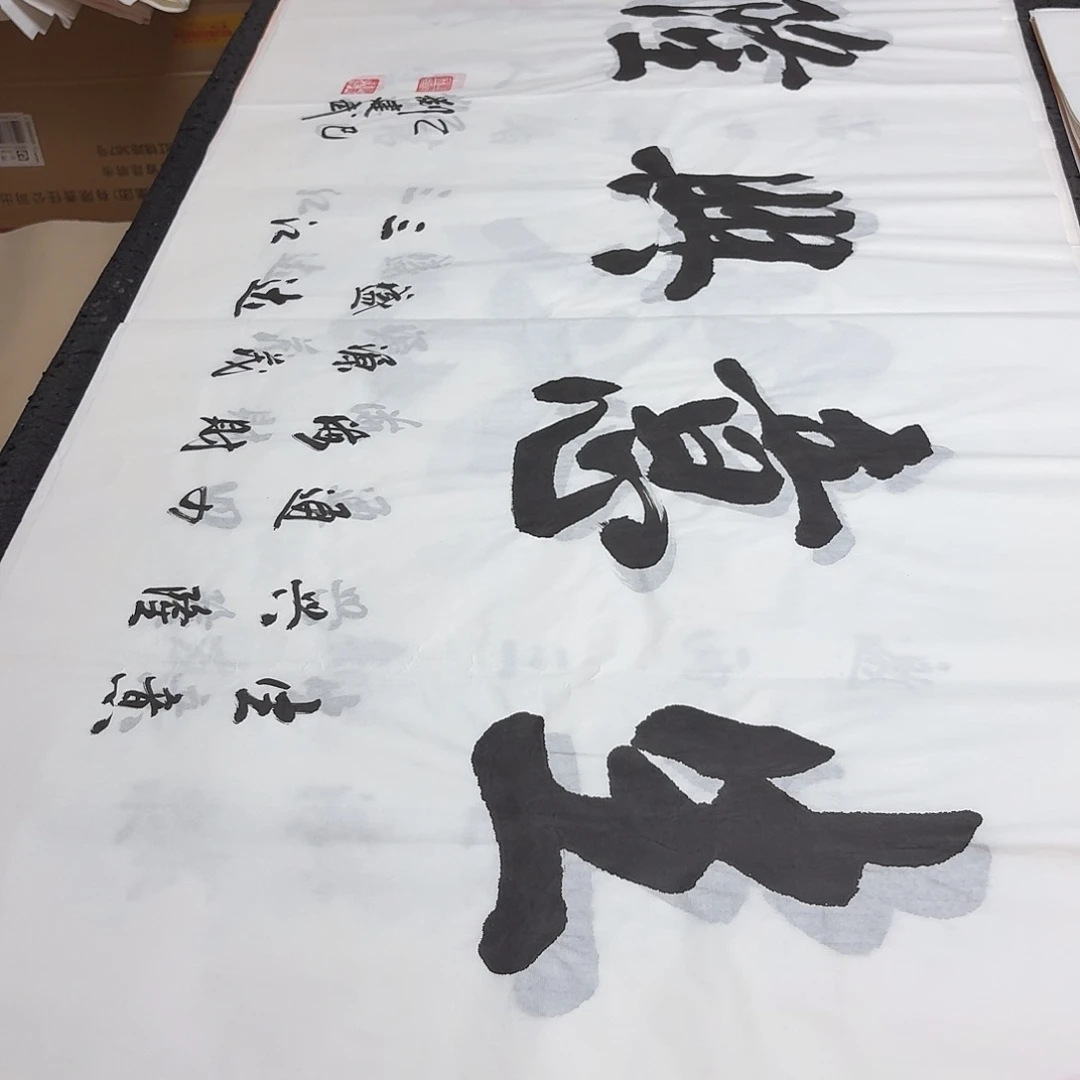 生意興隆
生意
兴隆
通四
海財
源茂
盛达
三江
乙巳
劉建